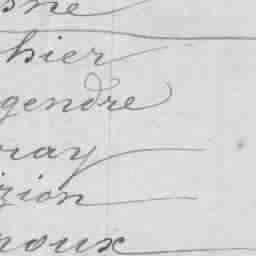 sne
hier
gendre
ray
zion
noux